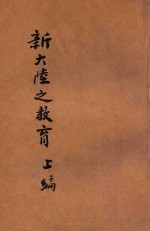 新大陸之教育上編